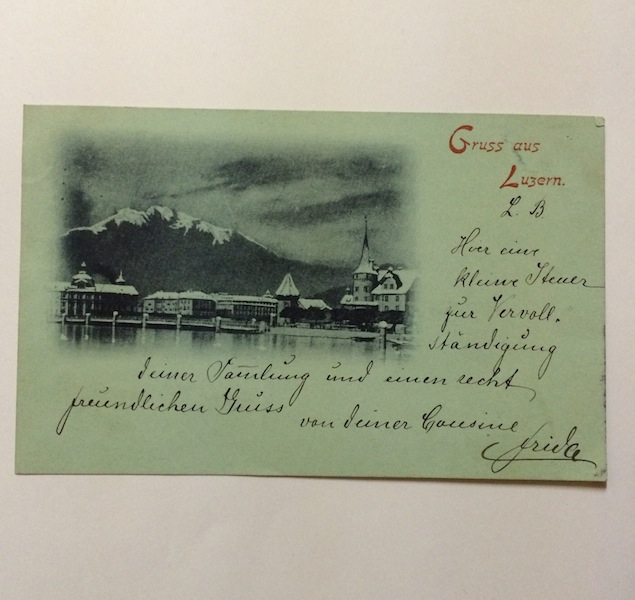 Gruss aus
Luzern.
L. B.
Hier eine
kleine Steuer
zur Vervoll-
ständigung
deiner Samlung und einen recht
freundlichen Gruss
von deiner Cousine
Frida